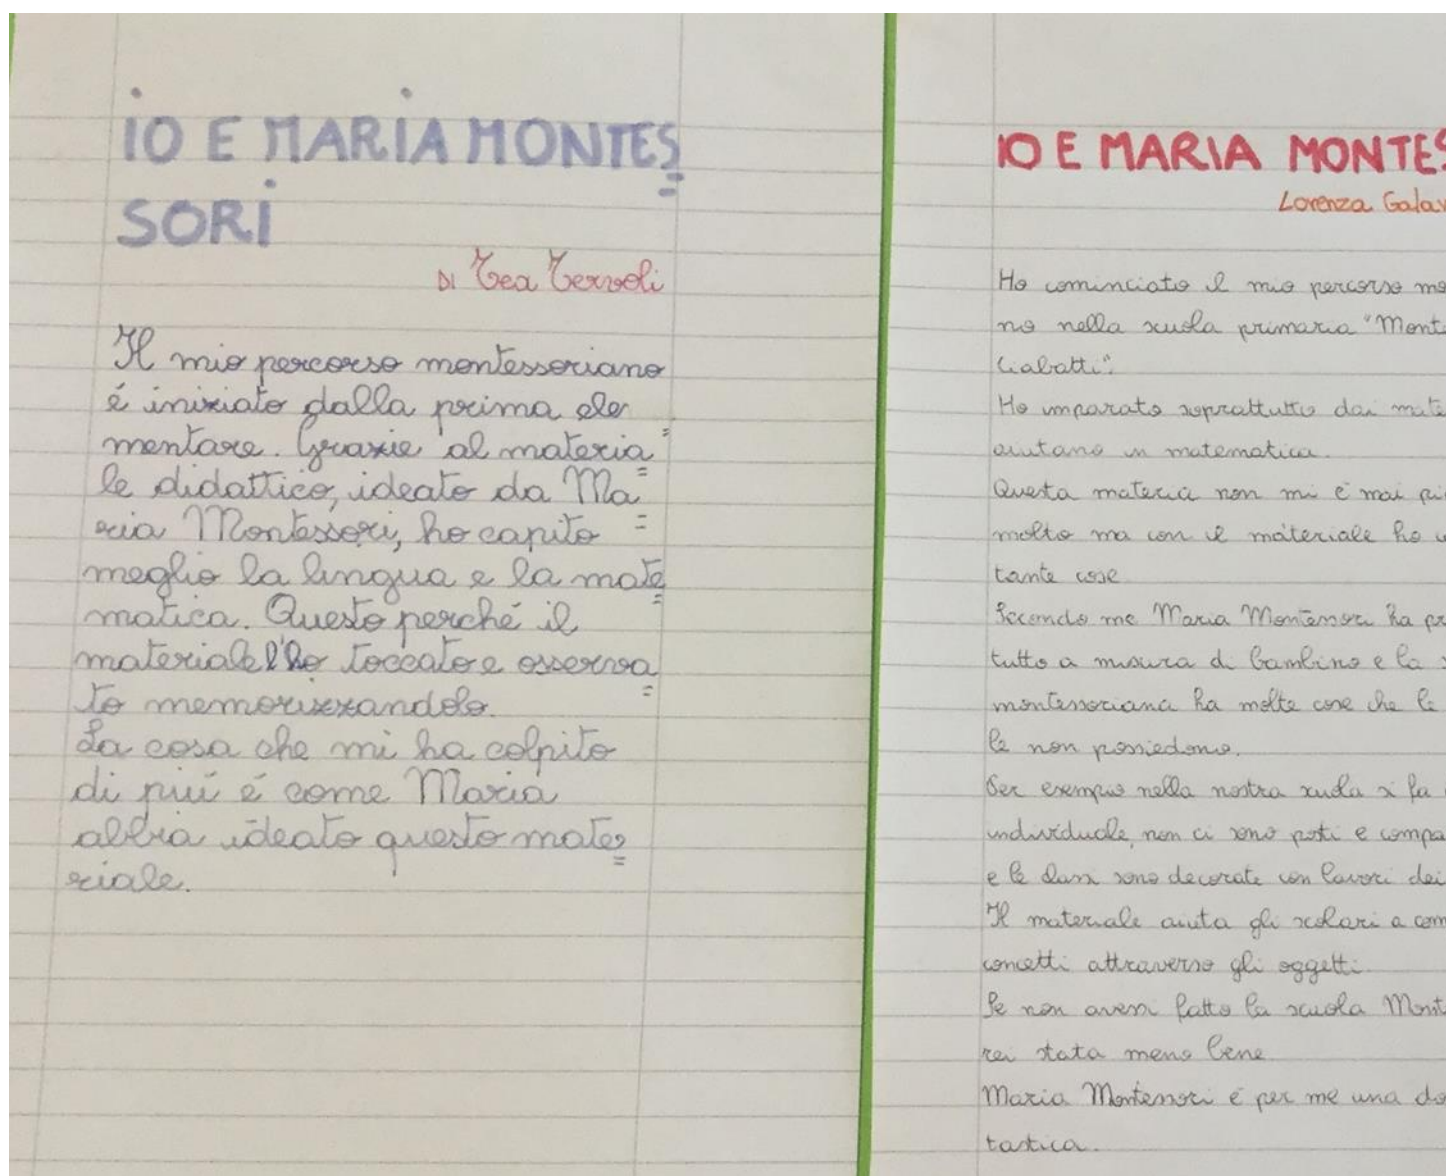 IO E MARIA MONTES=
SORI
DI Tea Tervoli
Il mio percorso montessoriano
é iniziato dalla prima ele
mentare. Grazie al materia=
le didattico, ideato da Ma=
ria Montessori, ho capito
meglio la lingua e la mate=
matica. Questo perché il
materiale l'ho toccato e osserva=
to memorizzandolo.
La cosa che mi ha colpito
di piú é come Maria
abbia ideato questo mate=
riale.
IO E MARIA MONTES
Lorenza Galav
Ho cominciato il mio percorso mo
no nella scuola primaria "Monte
Ciabatti".
Ho imparato soprattutto dai mate
aiutano in matematica.
Questa materia non mi è mai pi
molto ma con il materiale ho
tante cose
Secondo me Maria Montessori ha pr
tutto a misura di bambino e la s
montessoriana ha molte cose che le
le non possiedono.
Per esempio nella nostra scuola si fa
individuale, non ci sono posti e compa
e le classi sono decorate con lavori dei
Il materiale aiuta gli scolari a com
concetti attraverso gli oggetti.
Se non avessi fatto la scuola Mont
rei stata meno bene
Maria Montessori è per me una do
tastica.